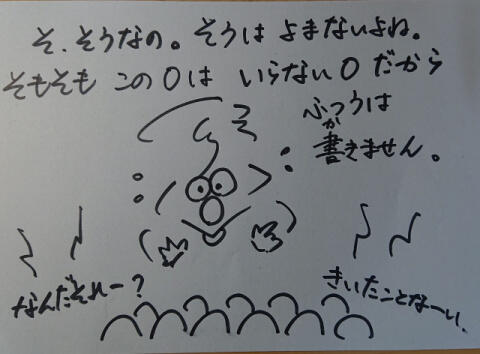 そ、そうなの。そうは よまないよね。
そもそも この0は いらない0だから
ふつうは
書きません。
か
なんだそれー?
きいたことなーい。